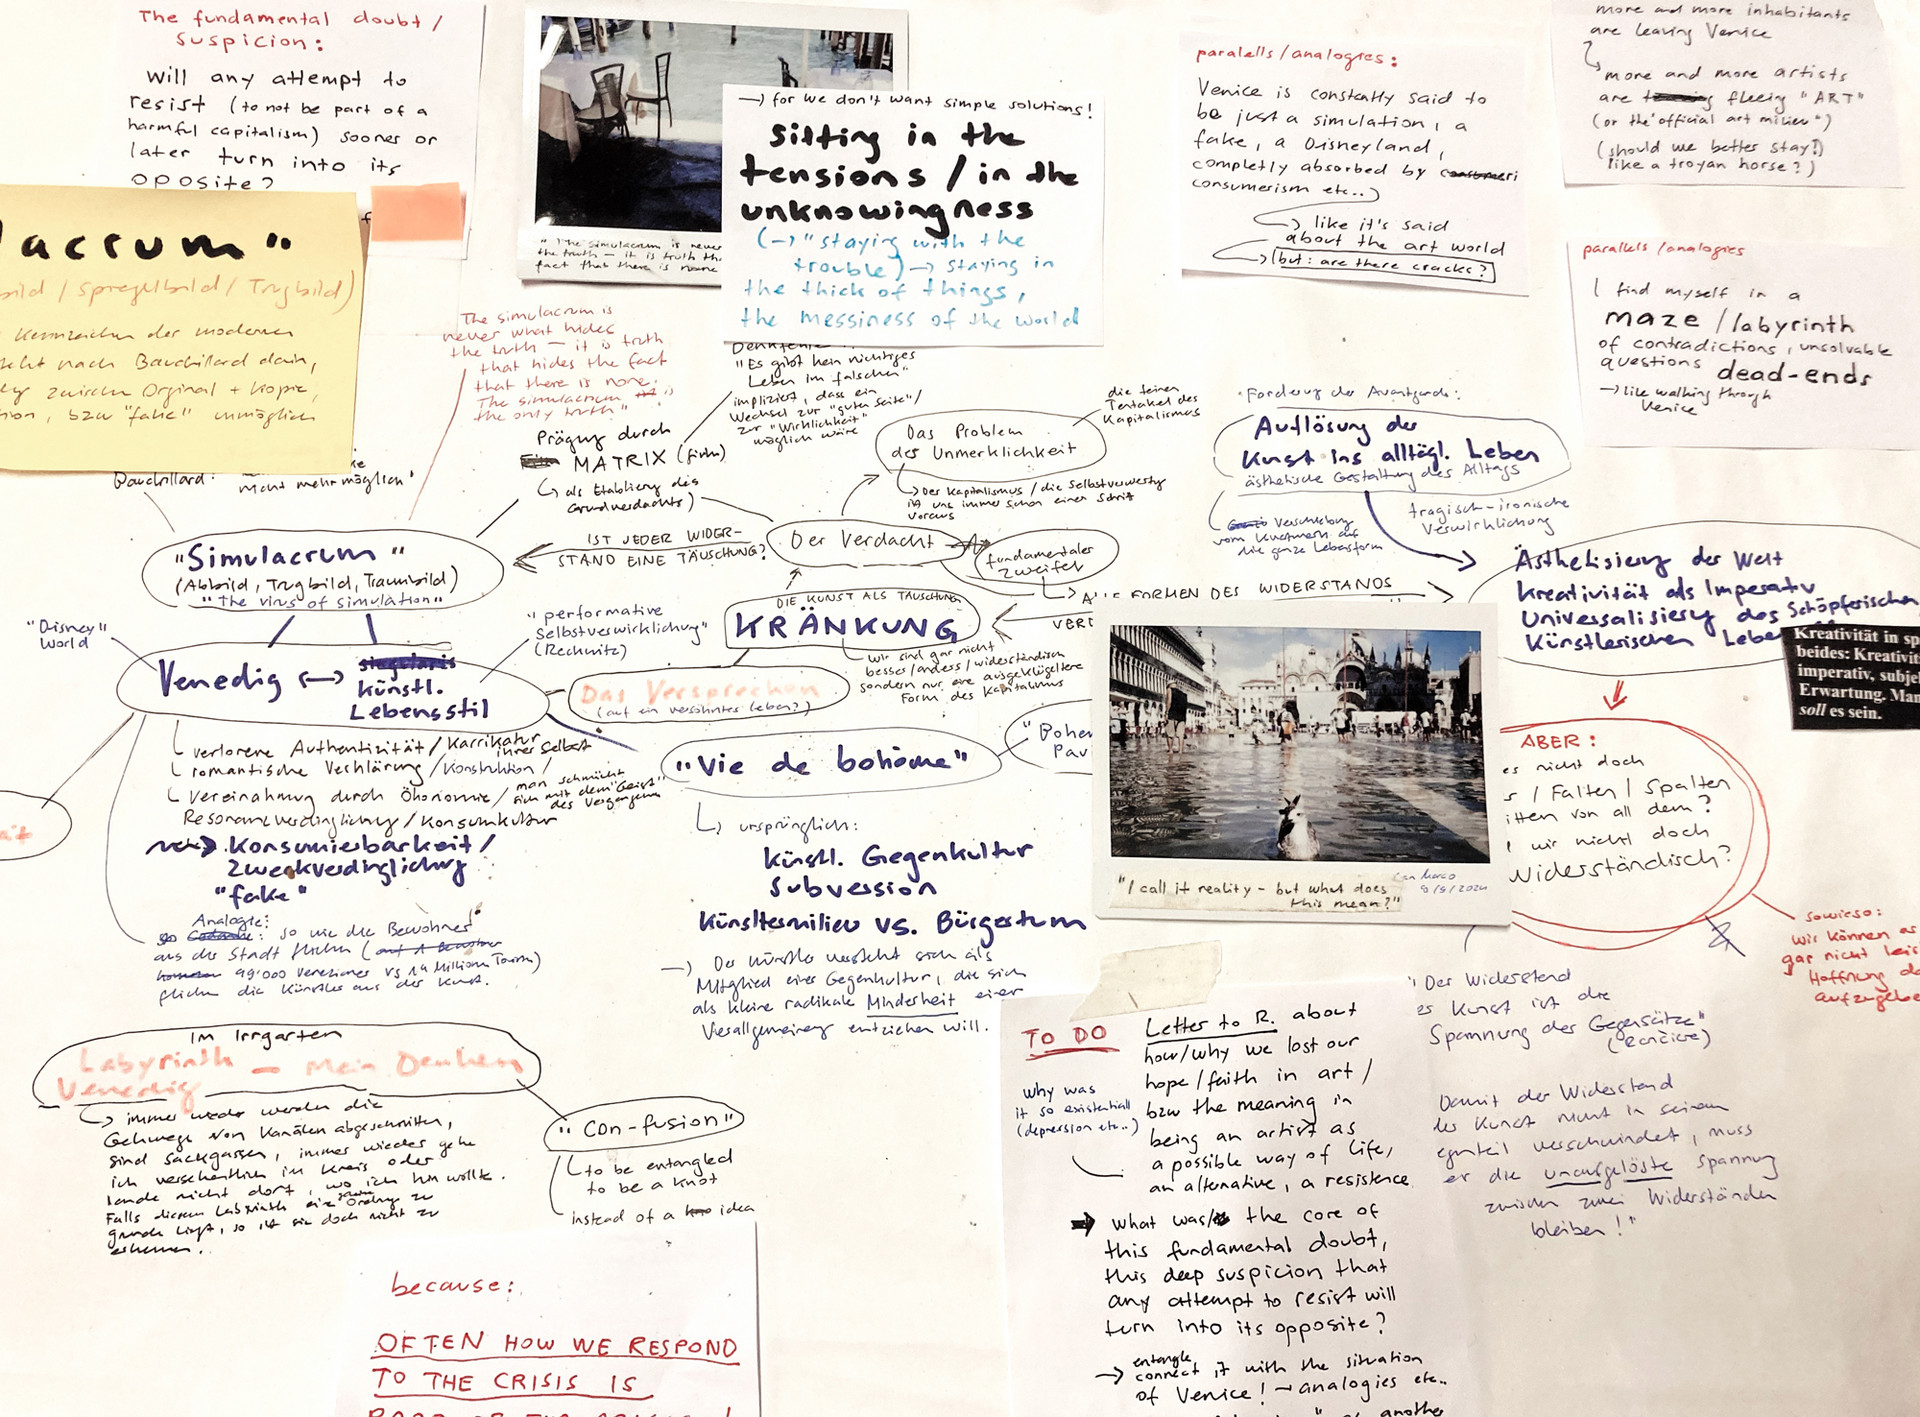 The fundamental doubt /
suspicion:
Will any attempt to
resist (to not be part of a
harmful capitalism) sooner or
later turn into its
opposite?
acrum"
bild / Spiegelbild / Trugbild)
Kennzeichen der modernen
nach Bauchillard darin,
zwischen Orginal + Kopie,
bzw "fake" unmöglich
Bauchillard:
nicht mehr möglich"
"The simulacrum is never
the truth – it is truth th
fact that there is none
→ for we don't want simple solutions!
Sitting in the
tensions / in the
unknowingness
(→ "staying with the
trouble) → staying in
the thick of things,
the messiness of the world
paralells/analogies:
Venice is constantly said to
be just a simulation, a
fake, a Disneyland,
completly absorbed by
consumerism etc..)
↳ like it's said
about the art world
→ but: are there cracks?
more and more inhabitants
are leaving Venice
↳ more and more artists
are fleeing "ART"
(or the "official art milieu")
(should we better stay?)
like a troyan horse?)
parallels/analogies
I find myself in a
maze / labyrinth
of contradictions, unsolvable
questions dead-ends
→ like walking through
Venice
The simulacrum is
never what hides
the truth – it is truth
that hides the fact
that there is none.
The simulacrum is
the only truth"
"Es gibt kein richtiges
Leben im falschen"
impliziert, dass ein
Wechsel zur "guten Seite"/
zur "Wirklichkeit"
möglich wäre
Prägung durch
MATRIX (film)
↳ als Etablierung des
Grundverdachts)
Das Problem
der Unmerklichkeit
die feinen
Tentakel des
Kapitalismus
↳ Der Kapitalismus / die Selbstverwertung
ist uns immer schon einen Schritt
voraus
Forderung der Avantgarde:
Auflösung der
Kunst ins alltägl. Leben
ästhetische Gestaltung des Alltags
Verschiebung
vom Kunstwerk auf
die ganze Lebensform
tragisch-ironische
Verwirklichung
"Simulacrum"
(Abbild, Trugbild, Traumbild)
"The virus of simulation"
IST JEDER WIDER-
STAND EINE TÄUSCHUNG?
Der Verdacht
fundamentaler
Zweifel
ALLE FORMEN DES WIDERSTANDS
DIE KUNST ALS TÄUSCHUNG
KRÄNKUNG
Wir sind gar nicht
besser/anders/widerständisch
sondern nur eine ausgeklügeltere
Form des Kapitalismus
Ästhetisierung der Welt
Kreativität als Imperativ
Universalisierung des Schöpferischen
Künstlerischen Lebe
Kreativität in sp
beides: Kreativit
imperativ, subje
Erwartung. Man
soll es sein.
"Disney"
World
Venedig ↔ künstl.
Lebensstil
"performative
Selbstverwirklichung"
(Reckwitz)
Das Versprechen
(auf ein versöhntes Leben?)
↳ verlorene Authentizität / Karrikatur
ihrer Selbst
↳ romantische Verklärung / Konstruktion /
↳ Vereinahmung durch Ökonomie / man schmückt
sich mit dem "Geist"
des Vergangenen
Resonanzverdinglichung / Konsumkultur
→ Konsumierbarkeit /
Zweckverdinglichung
"fake"
Analogie:
so wie die Bewohner
aus der Stadt fliehen
49'000 Venezianer vs 14 Millionen Touris)
fliehen die Künstler aus der Kunst.
"Vie de bohème"
↳ ursprünglich:
künstl. Gegenkultur
Subversion
Künstlermilieu vs. Bürgertum
→ Der Künstler versteht sich als
Mitglied einer Gegenkultur, die sich
als kleine radikale Minderheit einer
Verallgemeinerung entziehen will.
"I call it reality – but what does
this mean?"
San Marco
ABER:
es nicht doch
/ Falten / Spalten
itten von all dem?
wir nicht doch
widerständisch?
sowieso:
wir können es
gar nicht leis
Hoffnung
aufzugebe
Im Irrgarten
Labyrinth – Mein Denken
Venedig
↳ immer wieder werden die
Gehwege von Kanälen abgeschnitten,
sind Sackgassen, immer wieder gehe
ich versehentlich im Kreis oder
lande nicht dort, wo ich hin wollte.
Falls diesem Labyrinth eine Ordnung zu
grunde liegt, so ist sie doch nicht zu
erkennen.
"Con-fusion"
to be entangled
to be a knot
instead of a idea
because:
OFTEN HOW WE RESPOND
TO THE CRISIS IS
TO DO
why was
it so existentiall
(depression etc..)
Letter to R. about
how/why we lost our
hope/faith in art /
bzw the meaning in
being an artist as
a possible way of life,
an alternative, a resistence
→ what was/is the core of
this fundamental doubt,
this deep suspicion that
any attempt to resist will
turn into its opposite?
entangle
→ connect it with the situation
of Venice! → analogies etc..
another
"Der Widerstand
der Kunst ist die
Spannung der Gegensätze"
(Rancière)
Damit der Widerstand
der Kunst nicht in seinem
gegenteil verschwindet, muss
er die unaufgelöste Spannung
zwischen zwei Widerständen
bleiben!"